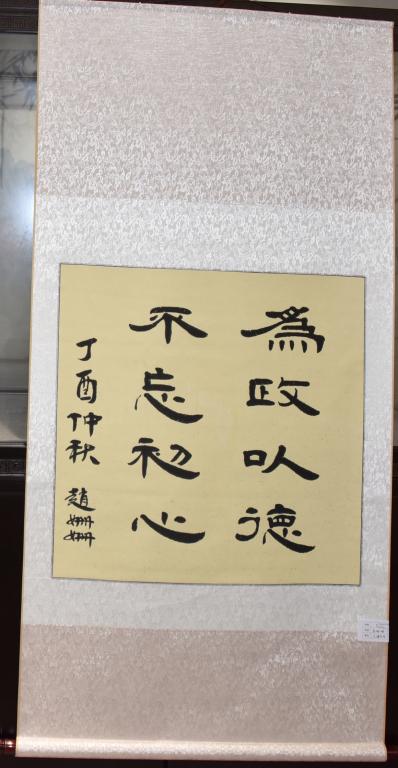 為政以德
不忘初心
丁酉仲秋 趙姗姗